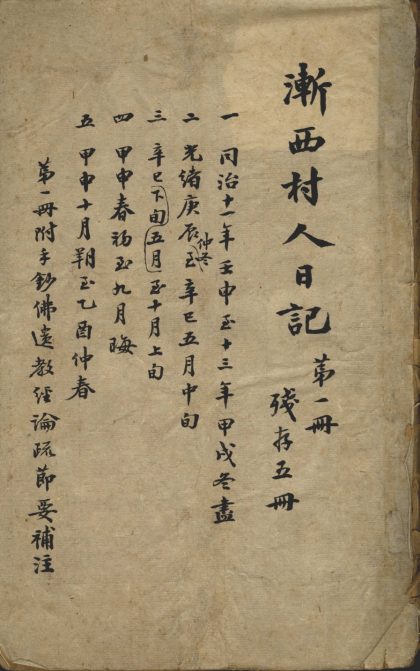 漸西村人日記 第一冊
殘存五冊
一 同治十一年壬申至十三年甲戌冬盡
二 光緒庚辰仲冬至辛巳五月中旬
三 辛巳下旬五月至十月上旬
四 甲申春初至九月晦
五 甲申十月朔至乙酉仲春
第一冊附手鈔佛遺教經論疏節要補注